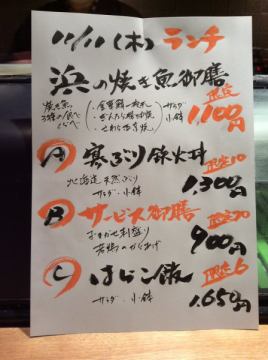 11/11(木)ランチ
浜の焼き魚御膳
焼き魚
3種の食べくらべ
サラダ
小鉢
限定
1,100円
A 寒ぶり鉄火丼 限定10
北海道天然ぶり
サラダ・小鉢
1,300円
B サービス御膳 限定20
おまかせ刺盛り
若鶏のからあげ
900円
C はらこ飯 限定6
サラダ・小鉢
1,650円